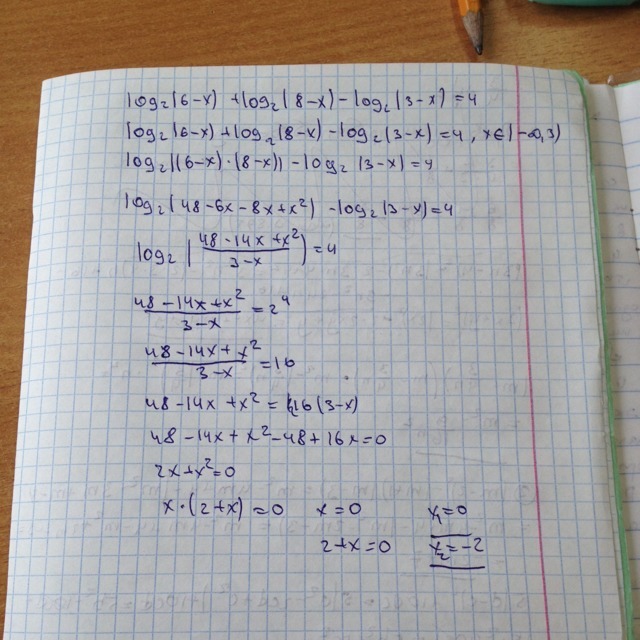 log₂(6-x) + log₂(8-x) - log₂(3-x) = 4
log₂(6-x) + log₂(8-x) - log₂(3-x) = 4, x∈(-∞,3)
log₂((6-x)·(8-x)) - log₂(3-x) = 4
log₂(48-6x-8x+x²) - log₂(3-x) = 4
log₂((48-14x+x²)/(3-x)) = 4
(48-14x+x²)/(3-x) = 2⁴
(48-14x+x²)/(3-x) = 16
48-14x+x² = 16(3-x)
48-14x+x²-48+16x=0
2x+x²=0
x·(2+x)=0 x=0 x₁=0
2+x=0 x₂=-2